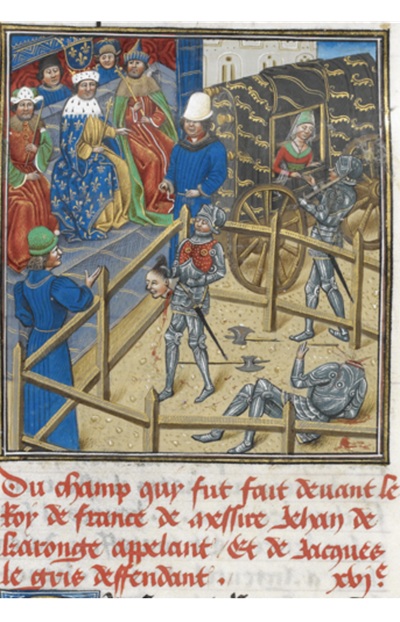 Du champ quy fut fait devant le
Roy de france de messire Jehan de
karongte appelant Et de Jacques
le gris deffendant . xvjᵉ